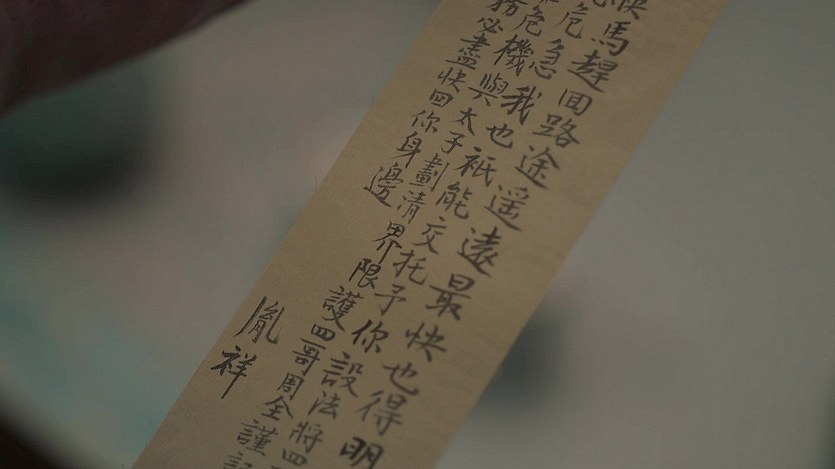 快馬趕回路途遥遠最快也得明
危急我也衹能交托予你設法將四
危機與太子劃清界限護四哥周全謹記
務必盡快回你身邊
胤祥